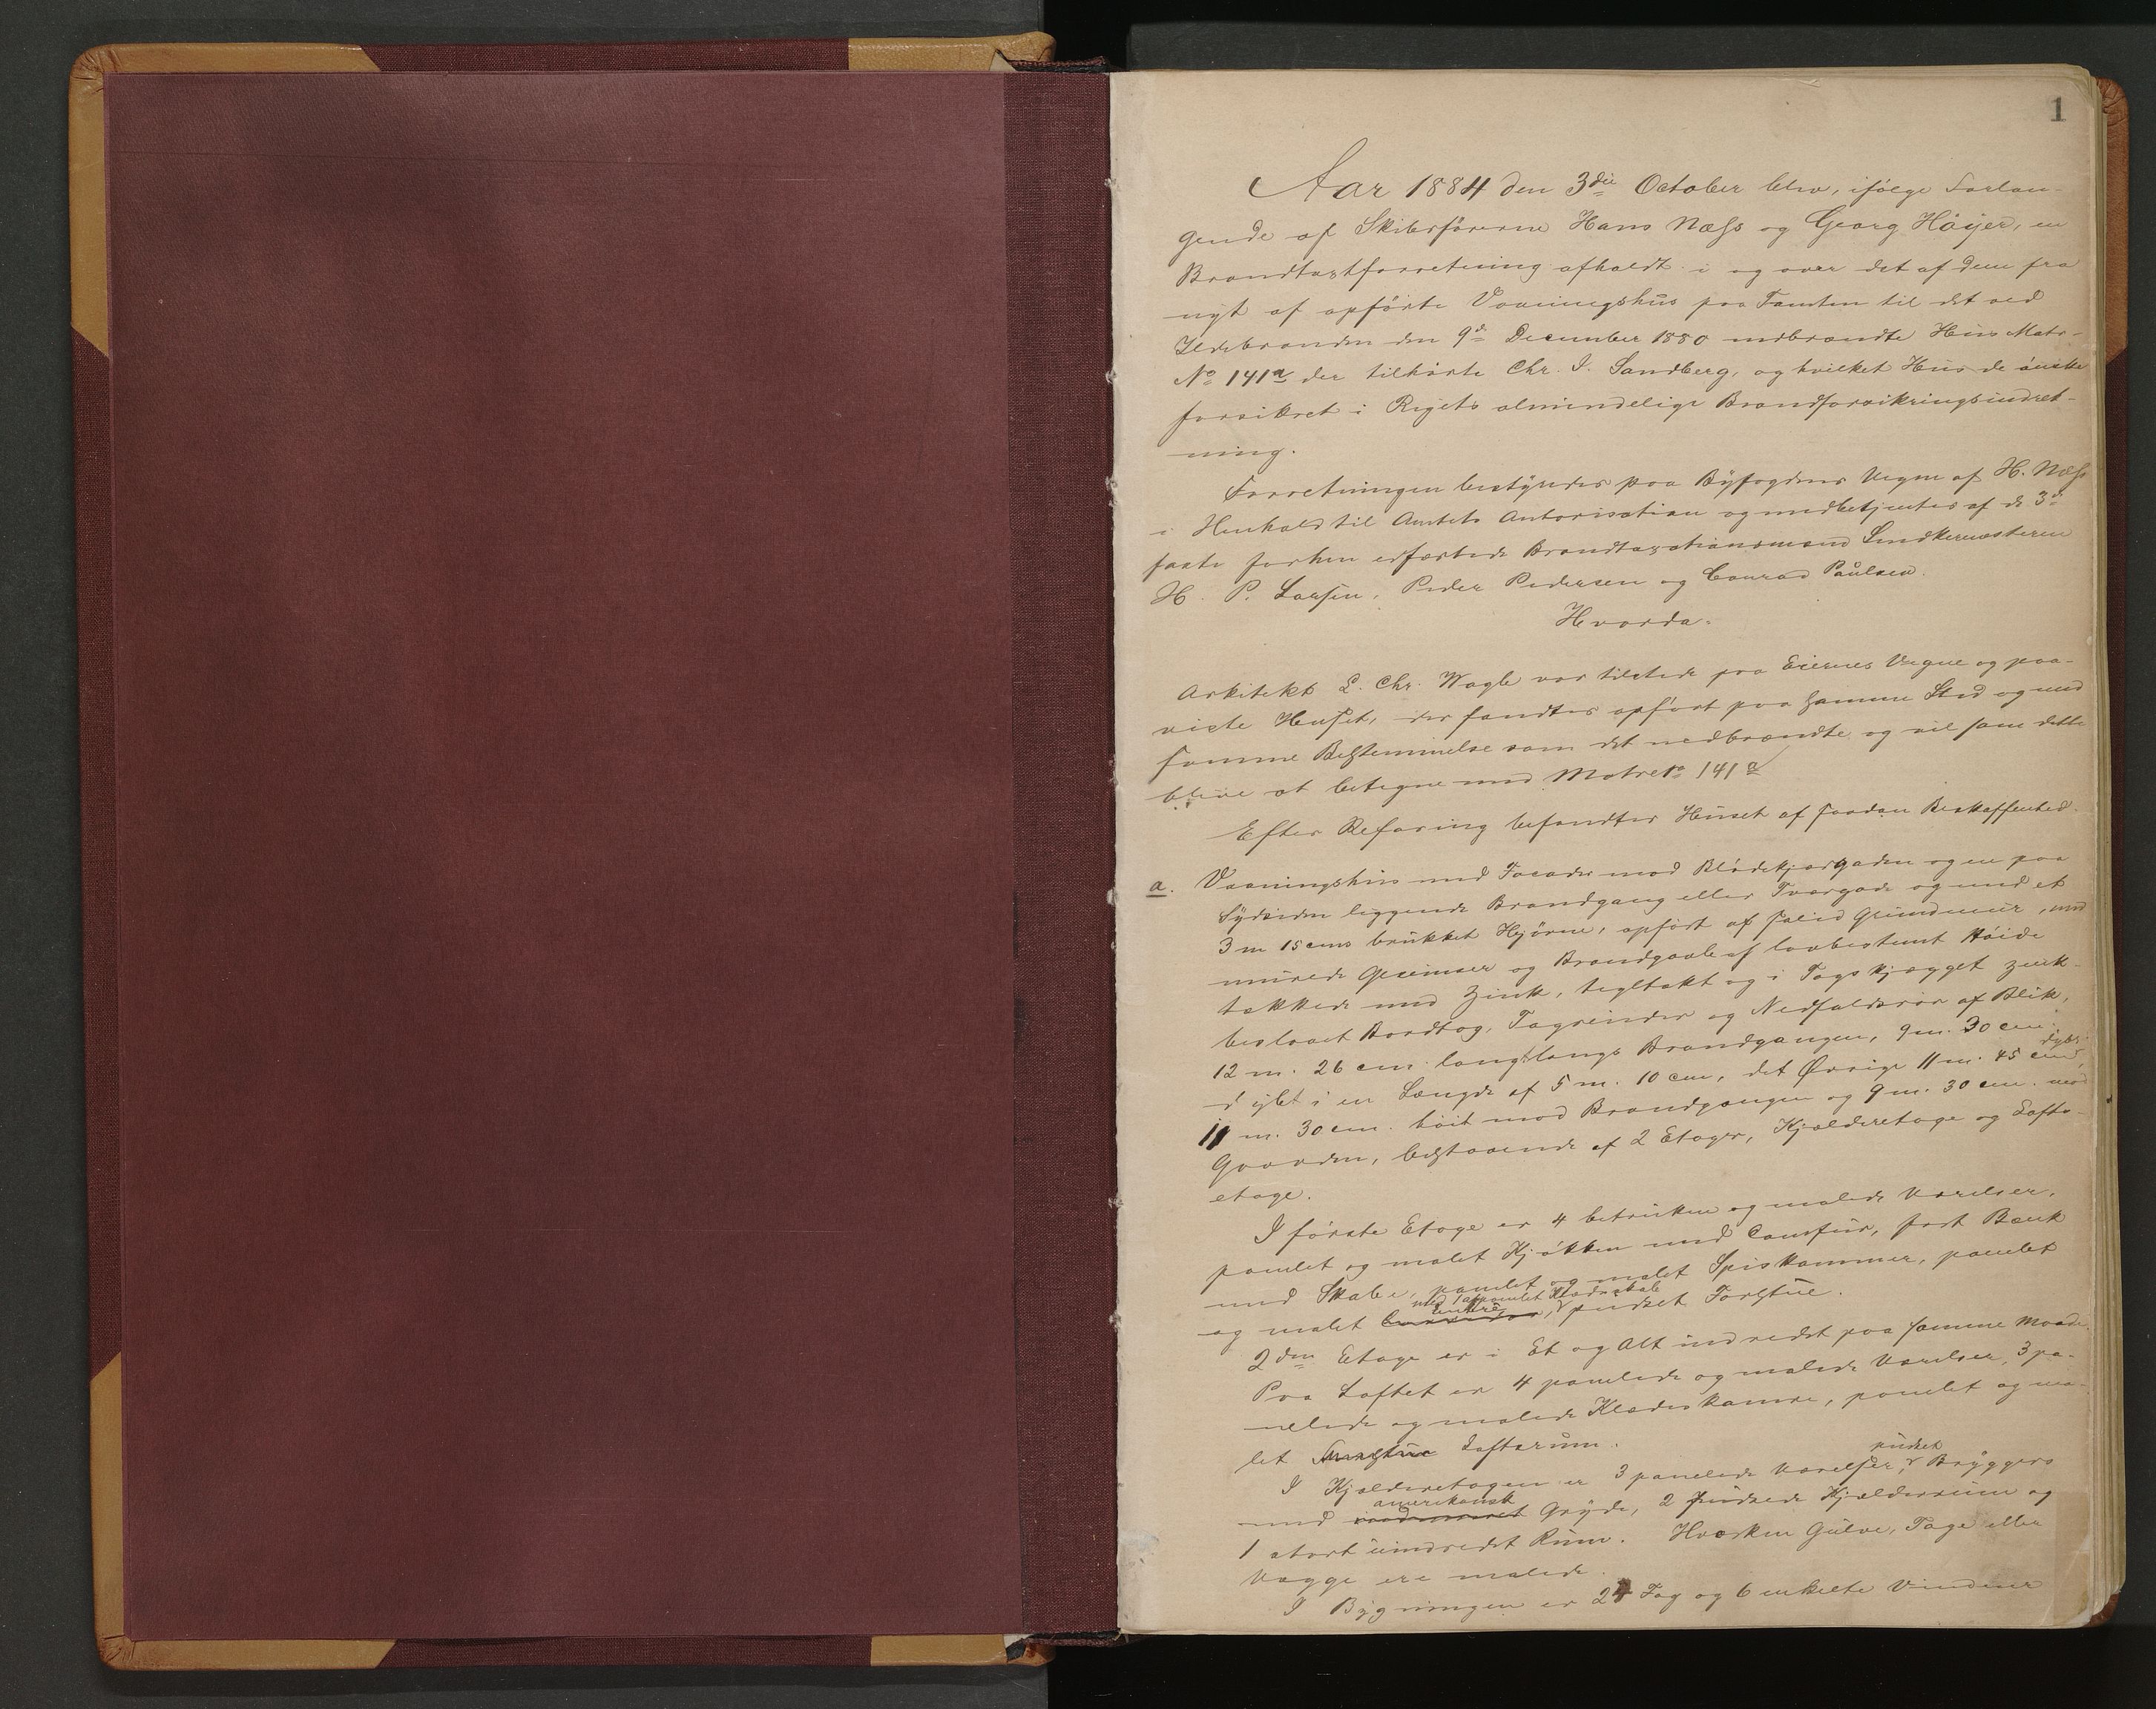 1
Aar 1884 den 3die October blev, ifølge Forlan-
gende af Skibsførerne Hans Næss og Georg Høyer, en
Brandtaxtforretning afholdt i og over det af dem fra
nyt af opførte Vaaningshus paa Tomten til det ved
Ildebranden den 9de December 1880 nedbrændte Hus Matr-
No 141a der tilhørte Chr. I. Sandberg, og hvilket Hus de ønske
forsikret i Rigets almindelige Brandforsikringsindret-
ning.
Forretningen bestyredes paa Byfogdens Vegne af H. Næss
i Henhold til Amtets Autorisation og medbetjentes af de 3de
faste forhen edfæstede Brandtaxationsmænd Snedkermesterne
H. P. Larsen, Peder Pedersen og Conrad Paulsen.
Hvorda:
Arkitekt L. Chr. Wagle var tilstede paa Eiernes Vegne og paa-
viste Huset, der fandtes opført paa samme Sted og med
samme Bestemmelse som det nedbrændte og vil som dette
blive at betegne med Matr No 141a
Efter Besaring befandtes Huset af saadan Beskaffenhed.
a. Vaaningshus med Facader mod Blødekjærgaden og en paa
Sydsiden liggende Brandgang eller Tværgade og med et
3 m 15 cms brukket Hjørne, opført af solid Grundmur, med
murede Gesimser og Brandgavle af lovbestemt Høide
tækkede med Zink, tegltækt og i Tagskjægget zink-
beslaaet Bordtag, Tagrender og Nedfaldsrør af Blik,
12 m. 26 cm. langt langs Brandgangen, 9 m. 30 cm.
dybt i en Længde af 5 m. 10 cm, det Øvrige 11 m. 45 cm dybt,
11 m. 30 cm. høit mod Brandgangen og 9 m. 30 cm. mod
Gaarden, bestaaende af 2 Etager, Kjælderetage og Lofts-
etage.
I første Etage er 4 betrukne og malede Værelser,
panelet og malet Kjøkken med Comfur, fast Bænk
med Skabe, panelet og malet Spiskammer, panelet
og malet Entre med 1 afpanelet Klædeskab, pudset Forstue.
2den Etage er i Et og Alt indredet paa samme Maade.
Paa Loftet er 4 panelede og malede Værelser, 3 pa-
nelede og malede Klædeskamre, panelet og ma-
let Loftsrum.
I Kjælderetagen er 3 panelede Værelser, pudset Bryggers
med amerikansk Gryde, 2 pudsede Kjælderrum og
1 stort uindredet Rum. Hverken Gulve, Tage eller
Vægge ere malede.
I Bygningen er 24 Fag og 6 enkelte Vinduer